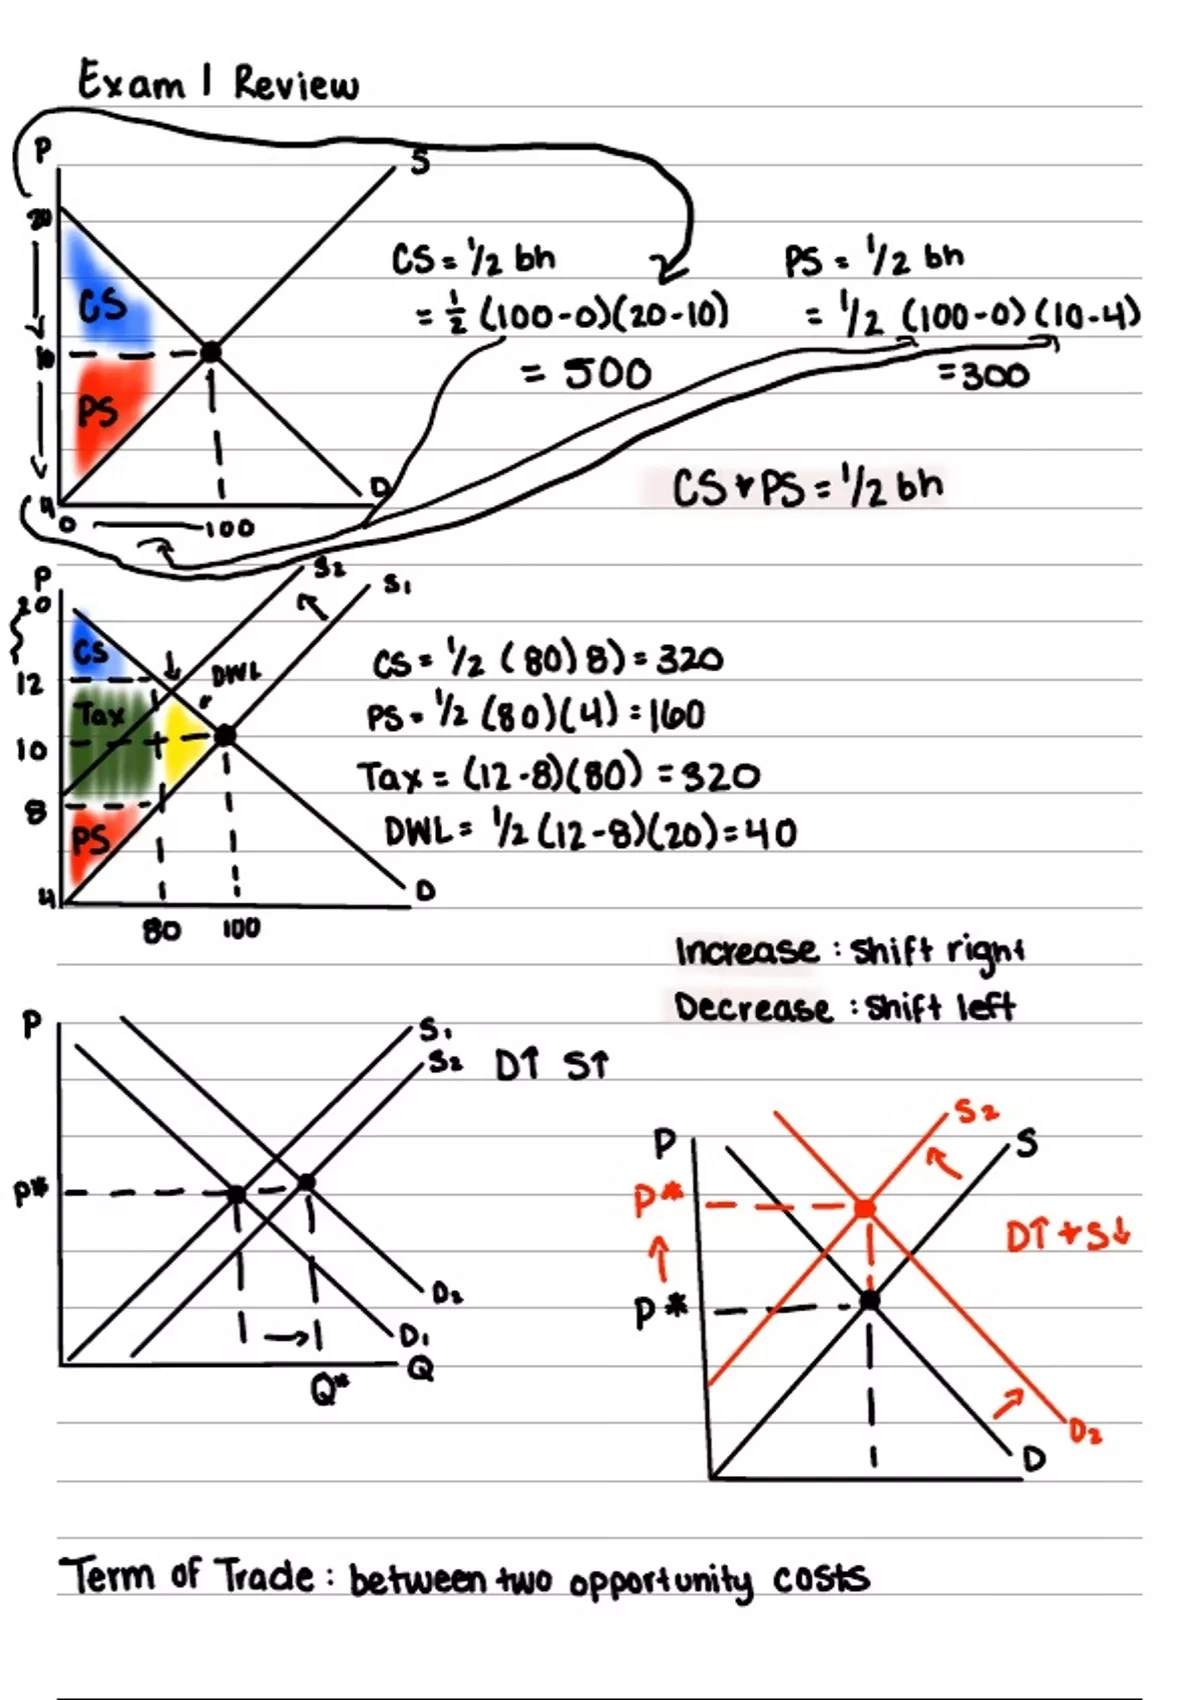 Exam 1 Review
P
S
20
CS = 1/2 bh
PS = 1/2 bh
CS
= 1/2 (100-0)(20-10)
= 1/2 (100-0)(10-4)
10
= 500
=300
PS
CS + PS = 1/2 bh
D
4
0
100
P
S2
S1
20
CS
DWL
CS = 1/2 (80)8) = 320
12
Tax
PS = 1/2 (80)(4) = 160
10
Tax = (12-8)(80) = 320
8
PS
DWL = 1/2 (12-8)(20) = 40
4
D
80
100
Increase : shift right
Decrease : shift left
P
S1
S2
D↑ S↑
P*
D2
D1
Q
Q*
S2
P
S
P*
D↑ + S↓
↑
P*
D2
D
Term of Trade : between two opportunity costs